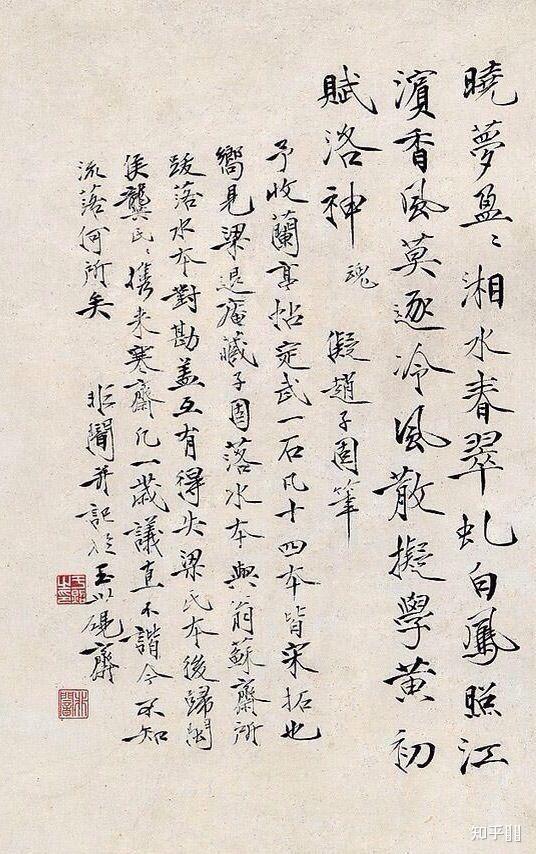 曉夢盈〻湘水春翠虬白鳳照江
濱香風莫逐冷風散擬學黃初
賦洛神
魂
擬趙子固筆
予收蘭亭帖定武一石凡十四本皆宋拓也
嚮見梁退庵藏子固落水本與翁蘇齋所
跋落水本對勘蓋互有得失梁氏本後歸閩
侯龔氏〻攜來寒齋凡一歲議直不諧今不知
流落何所矣
非闇并記於玉山硯齋
知乎